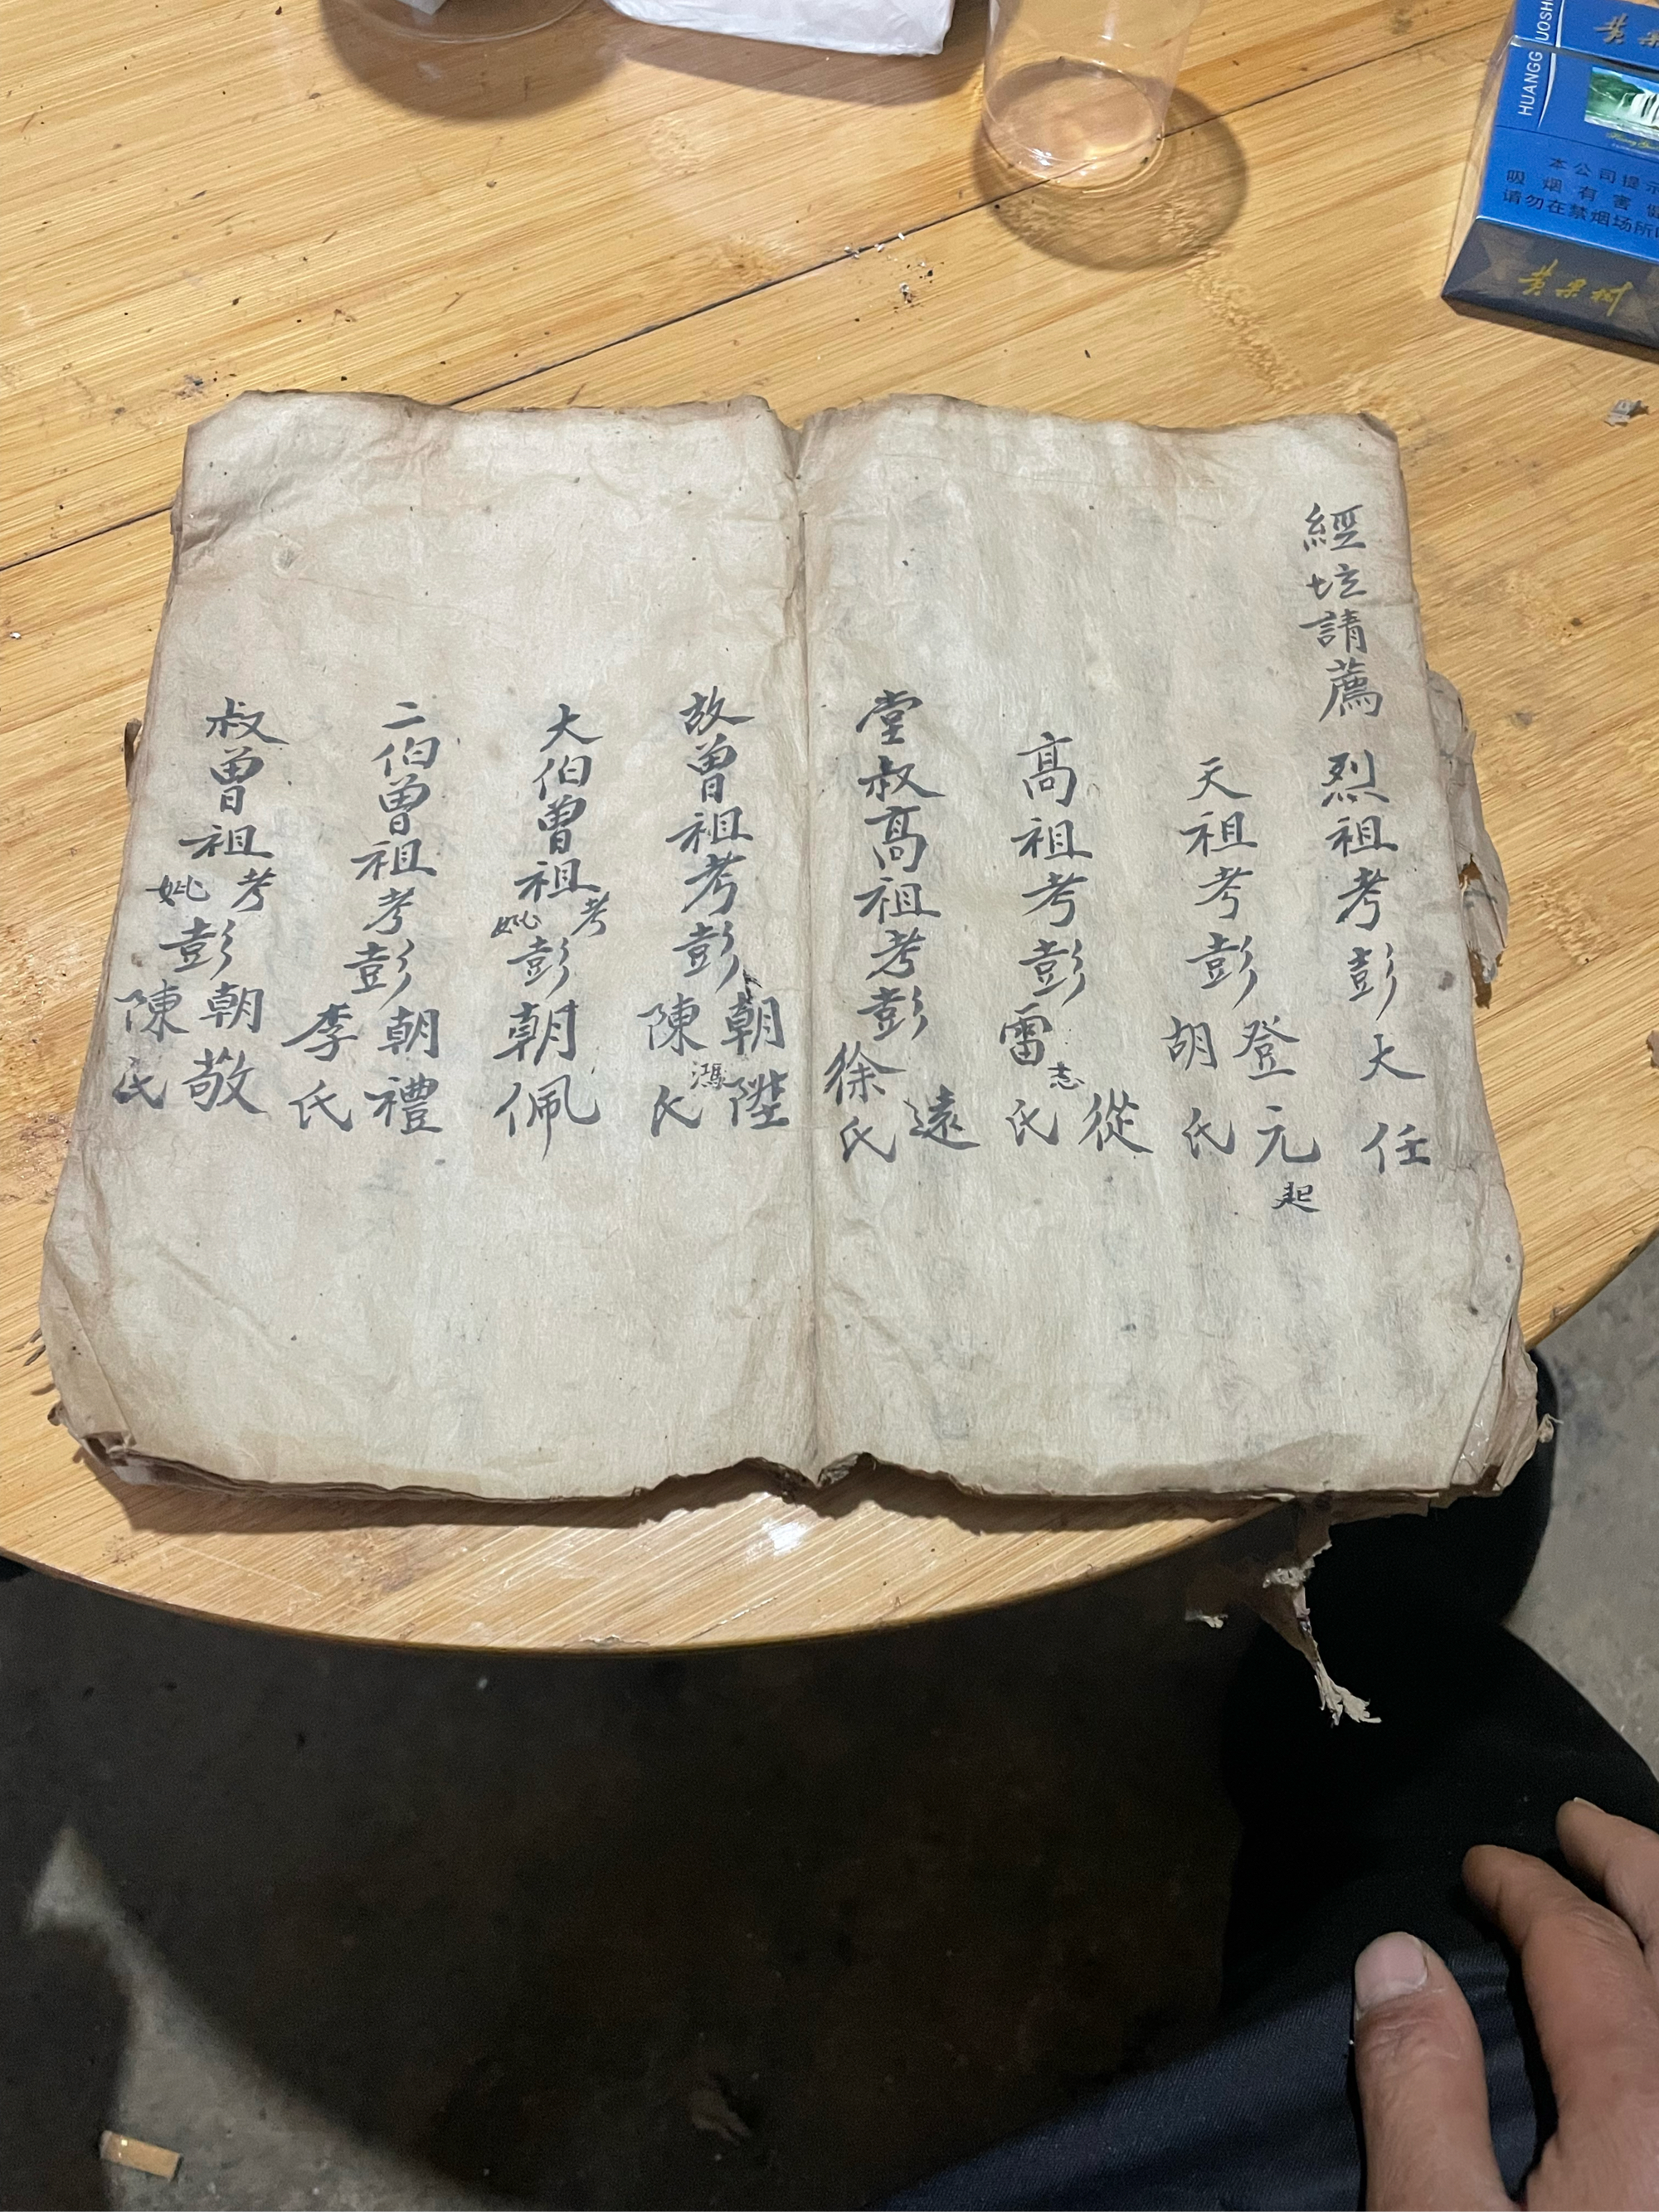 經坛請薦 烈祖考彭大任
天祖考彭登元起胡氏
高祖考彭志從雷氏
堂叔高祖考彭遠徐氏
故曾祖考彭朝陞鴻陳氏
大伯曾祖考妣彭朝佩
二伯曾祖考彭朝禮李氏
叔曾祖考妣彭朝敬陳氏
HUANGG UOSH
黄果
本公司提示
吸烟有害健
请勿在禁烟场所
黄果树